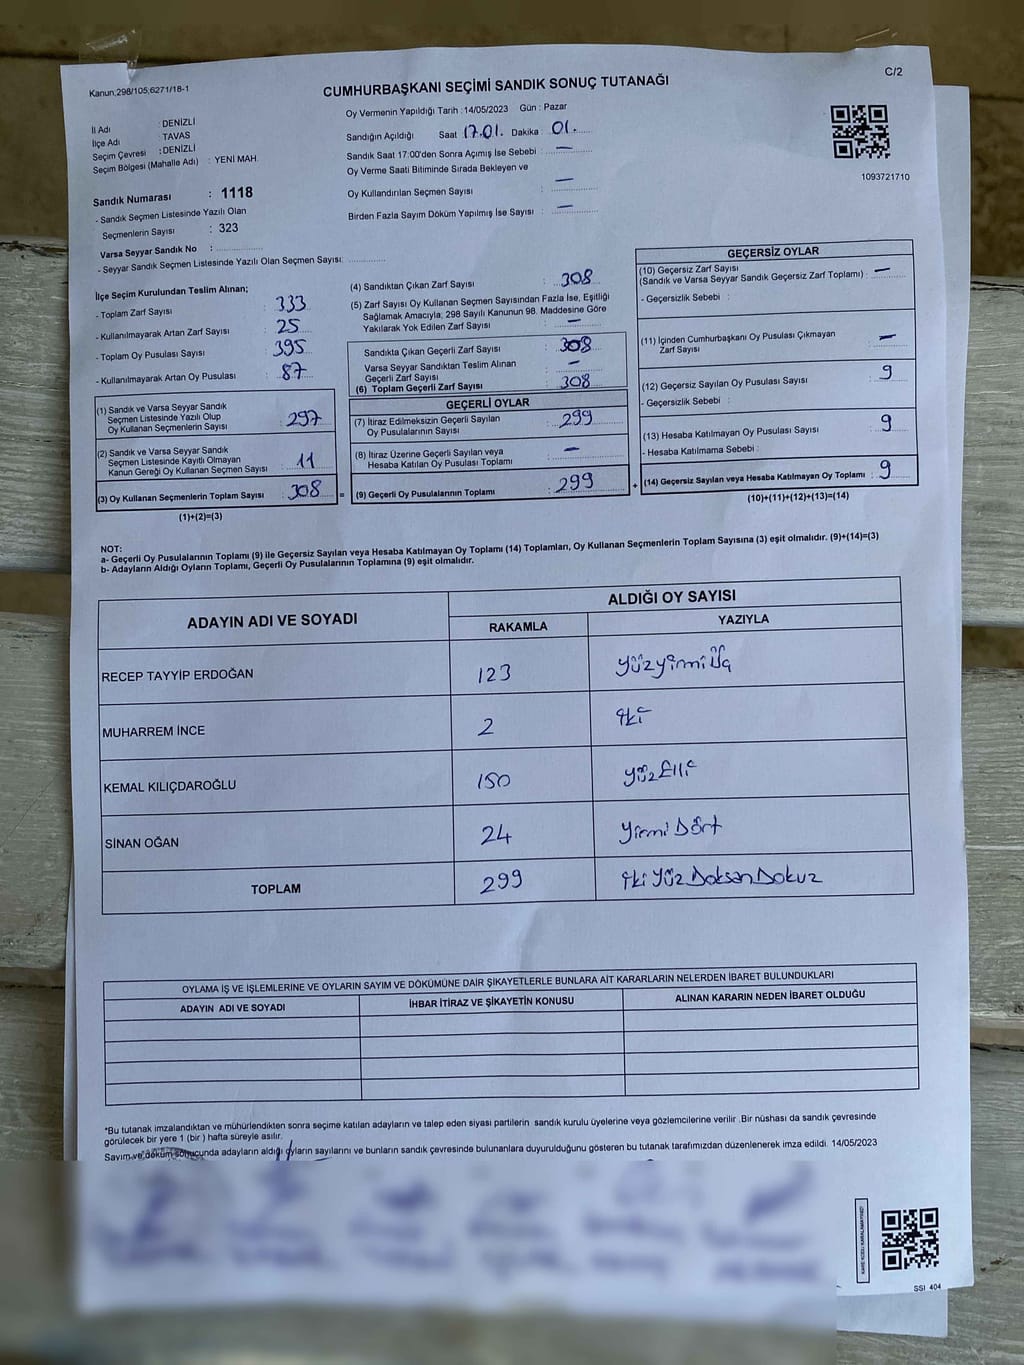 Kanun,298/105;6271/18-1
C/2
CUMHURBAŞKANI SEÇİMİ SANDIK SONUÇ TUTANAĞI
Oy Vermenin Yapıldığı Tarih : 14/05/2023 Gün : Pazar
İl Adı : DENİZLİ
İlçe Adı : TAVAS
Seçim Çevresi : DENİZLİ
Seçim Bölgesi (Mahalle Adı) : YENİ MAH.
Sandığın Açıldığı Saat 17.01. Dakika : 01.
Sandık Saat 17:00'den Sonra Açımış İse Sebebi : —
Oy Verme Saati Bitiminde Sırada Bekleyen ve
Oy Kullandırılan Seçmen Sayısı : —
Birden Fazla Sayım Döküm Yapılmış İse Sayısı : —
1093721710
Sandık Numarası : 1118
- Sandık Seçmen Listesinde Yazılı Olan
Seçmenlerin Sayısı : 323
Varsa Seyyar Sandık No :
- Seyyar Sandık Seçmen Listesinde Yazılı Olan Seçmen Sayısı:
İlçe Seçim Kurulundan Teslim Alınan;
- Toplam Zarf Sayısı : 333
- Kullanılmayarak Artan Zarf Sayısı : 25
- Toplam Oy Pusulası Sayısı : 395
- Kullanılmayarak Artan Oy Pusulası : 87
(1) Sandık ve Varsa Seyyar Sandık
Seçmen Listesinde Yazılı Olup
Oy Kullanan Seçmenlerin Sayısı : 297
(2) Sandık ve Varsa Seyyar Sandık
Seçmen Listesinde Kayıtlı Olmayan
Kanun Gereği Oy Kullanan Seçmen Sayısı : 11
(3) Oy Kullanan Seçmenlerin Toplam Sayısı : 308
(1)+(2)=(3)
(4) Sandıktan Çıkan Zarf Sayısı : 308
(5) Zarf Sayısı Oy Kullanan Seçmen Sayısından Fazla İse, Eşitliği
Sağlamak Amacıyla; 298 Sayılı Kanunun 98. Maddesine Göre
Yakılarak Yok Edilen Zarf Sayısı : —
Sandıkta Çıkan Geçerli Zarf Sayısı : 308
Varsa Seyyar Sandıktan Teslim Alınan
Geçerli Zarf Sayısı : —
(6) Toplam Geçerli Zarf Sayısı : 308
GEÇERLİ OYLAR
(7) İtiraz Edilmeksizin Geçerli Sayılan
Oy Pusulalarının Sayısı : 299
(8) İtiraz Üzerine Geçerli Sayılan veya
Hesaba Katılan Oy Pusulası Toplamı : —
= (9) Geçerli Oy Pusulalarının Toplamı : 299
GEÇERSİZ OYLAR
(10) Geçersiz Zarf Sayısı
(Sandık ve Varsa Seyyar Sandık Geçersiz Zarf Toplamı) : —
- Geçersizlik Sebebi :
(11) İçinden Cumhurbaşkanı Oy Pusulası Çıkmayan
Zarf Sayısı : —
(12) Geçersiz Sayılan Oy Pusulası Sayısı : 9
- Geçersizlik Sebebi :
(13) Hesaba Katılmayan Oy Pusulası Sayısı : 9
- Hesaba Katılmama Sebebi :
+ (14) Geçersiz Sayılan veya Hesaba Katılmayan Oy Toplamı : 9
(10)+(11)+(12)+(13)=(14)
NOT:
a- Geçerli Oy Pusulalarının Toplamı (9) ile Geçersiz Sayılan veya Hesaba Katılmayan Oy Toplamı (14) Toplamları, Oy Kullanan Seçmenlerin Toplam Sayısına (3) eşit olmalıdır. (9)+(14)=(3)
b- Adayların Aldığı Oyların Toplamı, Geçerli Oy Pusulalarının Toplamına (9) eşit olmalıdır.
ADAYIN ADI VE SOYADI
ALDIĞI OY SAYISI
RAKAMLA YAZIYLA
RECEP TAYYİP ERDOĞAN 123 Yüzyirmi Üç
MUHARREM İNCE 2 iki
KEMAL KILIÇDAROĞLU 150 YüzElli
SİNAN OĞAN 24 Yirmi Dört
TOPLAM 299 iki Yüz Doksan Dokuz
OYLAMA İŞ VE İŞLEMLERİNE VE OYLARIN SAYIM VE DÖKÜMÜNE DAİR ŞİKAYETLERLE BUNLARA AİT KARARLARIN NELERDEN İBARET BULUNDUKLARI
ADAYIN ADI VE SOYADI İHBAR İTİRAZ VE ŞİKAYETİN KONUSU ALINAN KARARIN NEDEN İBARET OLDUĞU
*Bu tutanak imzalandıktan ve mühürlendikten sonra seçime katılan adayların ve talep eden siyasi partilerin sandık kurulu üyelerine veya gözlemcilerine verilir. Bir nüshası da sandık çevresinde
görülecek bir yere 1 (bir) hafta süreyle asılır.
Sayım ve döküm sonucunda adayların aldığı oyların sayılarını ve bunların sandık çevresinde bulunanlara duyurulduğunu gösteren bu tutanak tarafımızdan düzenlenerek imza edildi. 14/05/2023
KARE KODU KARALAMAYINIZ!
SSI 404